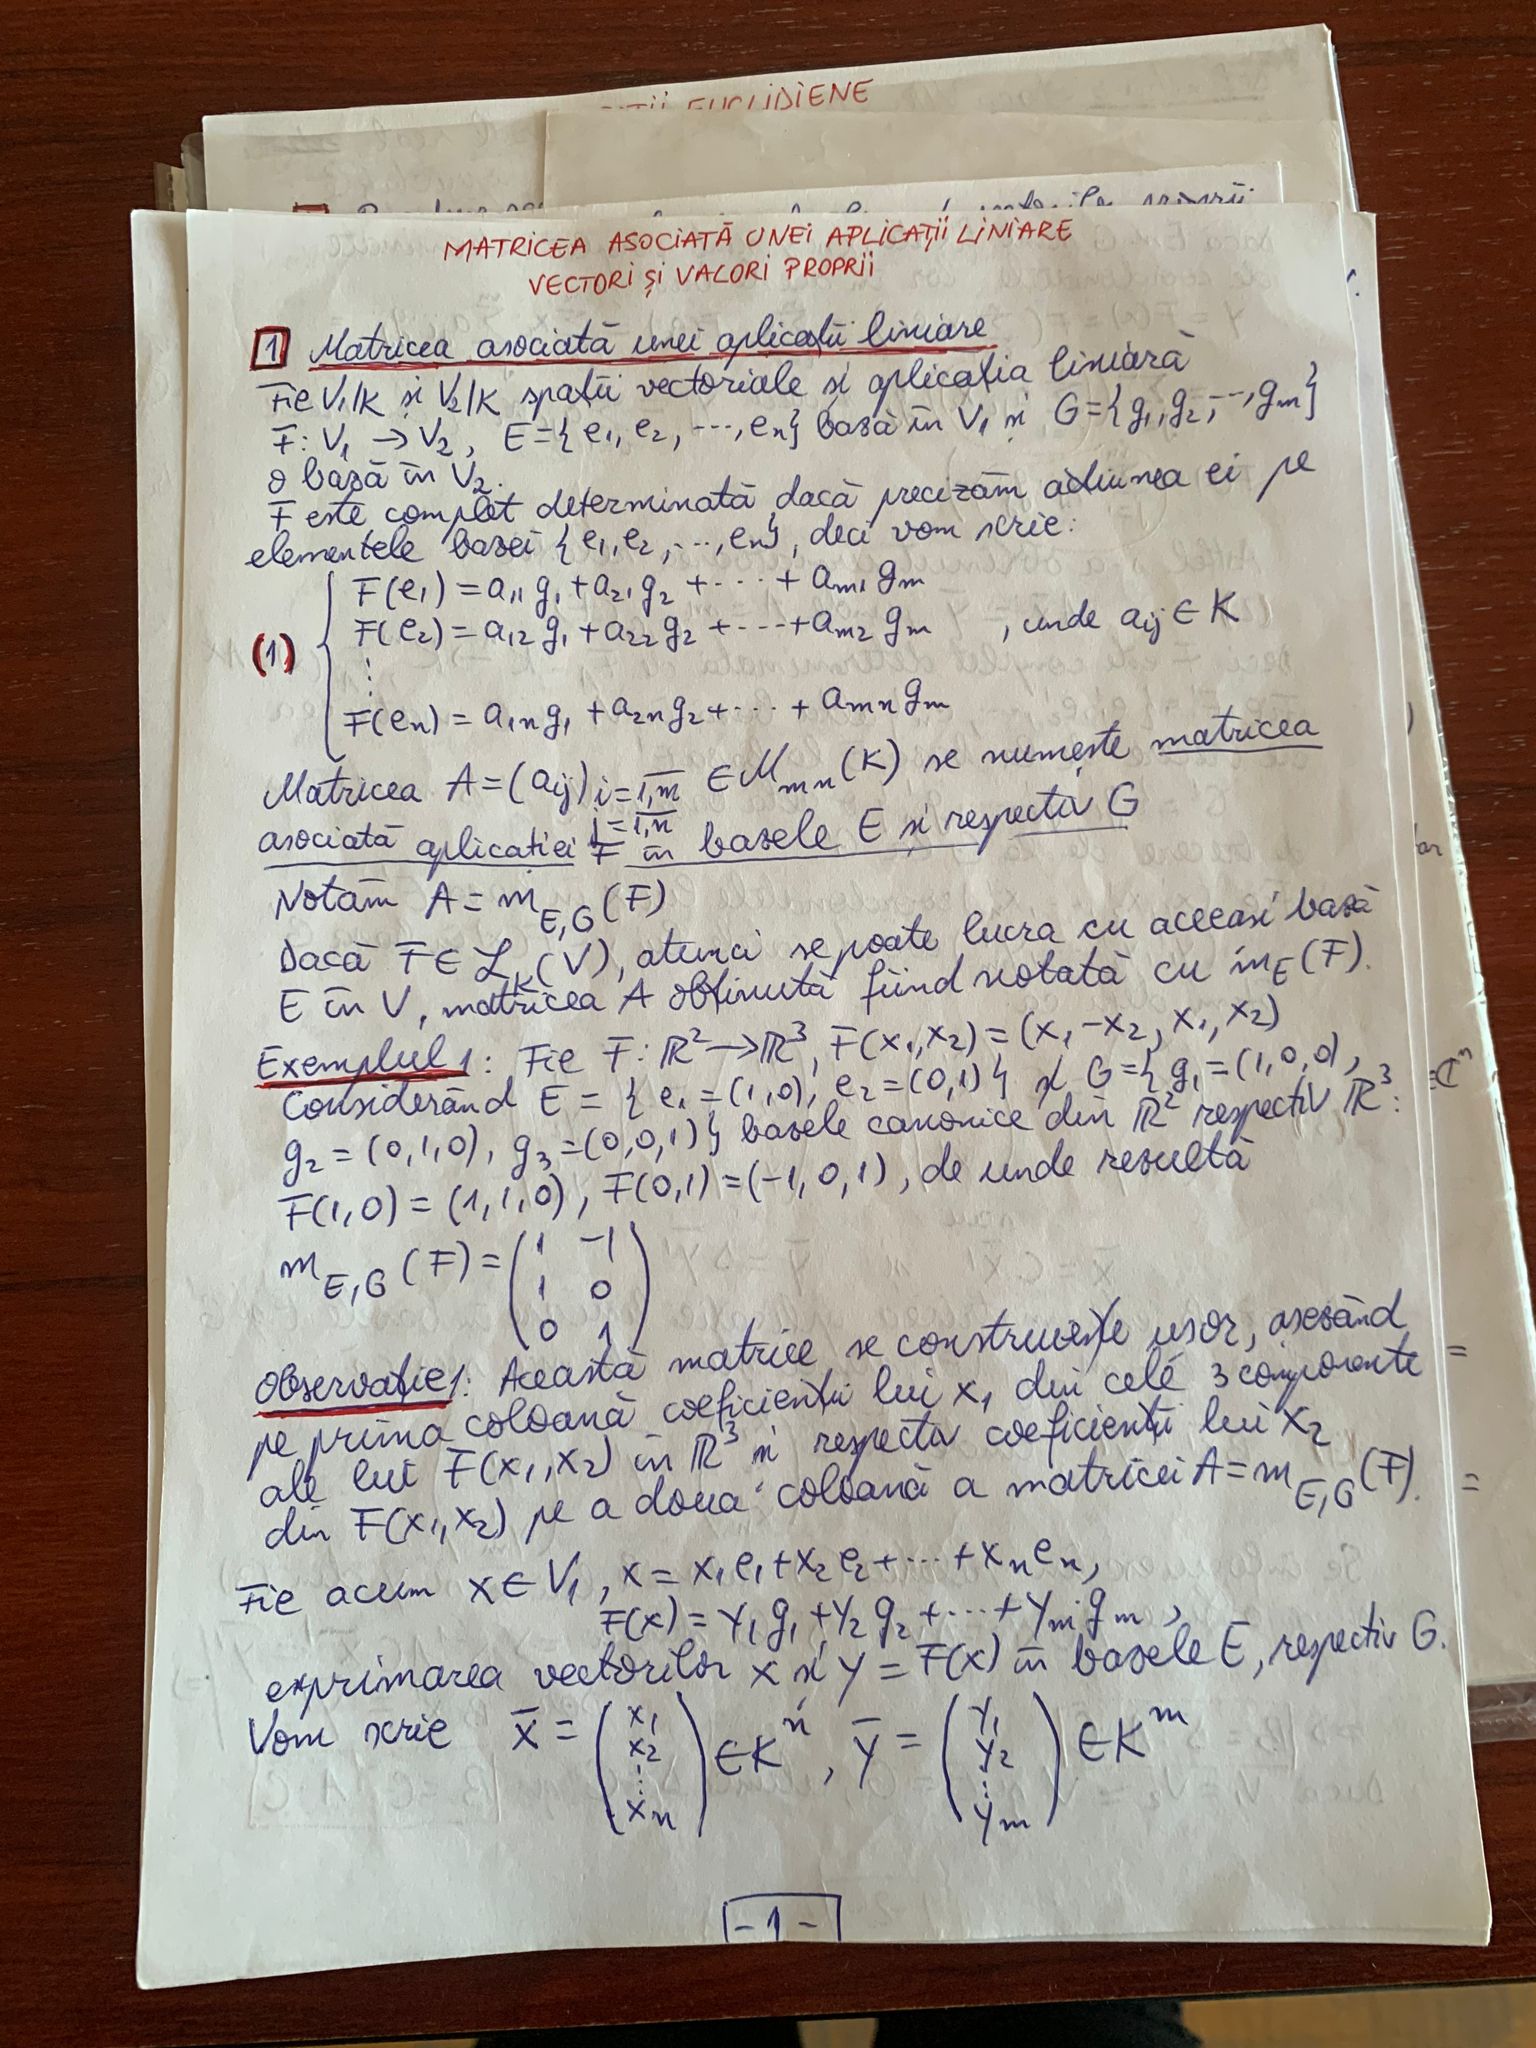 ȚII EUCLIDIENE
MATRICEA ASOCIATĂ UNEI APLICAȚII LINIARE
VECTORI ȘI VALORI PROPRII
1 Matricea asociată unei aplicații liniare
Fie V₁/K și V₂/K spații vectoriale și aplicația liniară
F: V₁ → V₂, E = {e₁, e₂, ..., eₙ} bază în V₁ și G = {g₁, g₂, ..., gₘ}
o bază în V₂.
F este complet determinată dacă precizăm acțiunea ei pe
elementele bazei {e₁, e₂, ..., eₙ}, deci vom scrie:
F(e₁) = a₁₁ g₁ + a₂₁ g₂ + ... + aₘ₁ gₘ
(1) F(e₂) = a₁₂ g₁ + a₂₂ g₂ + ... + aₘ₂ gₘ , unde aᵢⱼ ∈ K
⋮
F(eₙ) = a₁ₙ g₁ + a₂ₙ g₂ + ... + aₘₙ gₘ
Matricea A = (aᵢⱼ) i=1,m̅ ∈ Mₘₙ(K) se numește matricea
j=1,n̅
asociată aplicației F în bazele E și respectiv G
Notăm A = m_E,G (F)
Dacă F ∈ ℒ_K(V), atunci se poate lucra cu aceeași bază
E în V, matricea A obținută fiind notată cu m_E(F).
Exemplul 1: Fie F: ℝ² → ℝ³, F(x₁, x₂) = (x₁ - x₂, x₁, x₂)
Considerând E = {e₁ = (1,0), e₂ = (0,1)} și G = {g₁ = (1,0,0),
g₂ = (0,1,0), g₃ = (0,0,1)} bazele canonice din ℝ² respectiv ℝ³:
F(1,0) = (1,1,0), F(0,1) = (-1,0,1), de unde rezultă
m_E,G (F) = ( 1 -1
1 0
0 1 )
Observație 1: Această matrice se construiește ușor, așezând
pe prima coloană coeficienții lui x₁ din cele 3 componente
ale lui F(x₁, x₂) în ℝ³ și respectiv coeficienții lui x₂
din F(x₁, x₂) pe a doua coloană a matricei A = m_E,G (F).
Fie acum x ∈ V₁, x = x₁e₁ + x₂e₂ + ... + xₙeₙ,
F(x) = y₁g₁ + y₂g₂ + ... + yₘgₘ,
exprimarea vectorilor x și y = F(x) în bazele E, respectiv G.
Vom scrie x̅ = (x₁ x₂ ⋮ xₙ) ∈ Kⁿ, y̅ = (y₁ y₂ ⋮ yₘ) ∈ Kᵐ
-1-